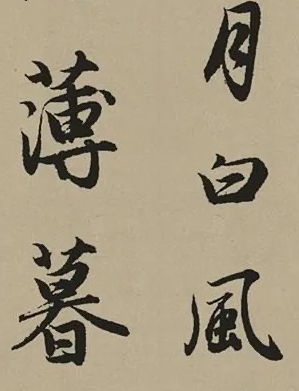 月白風
薄暮